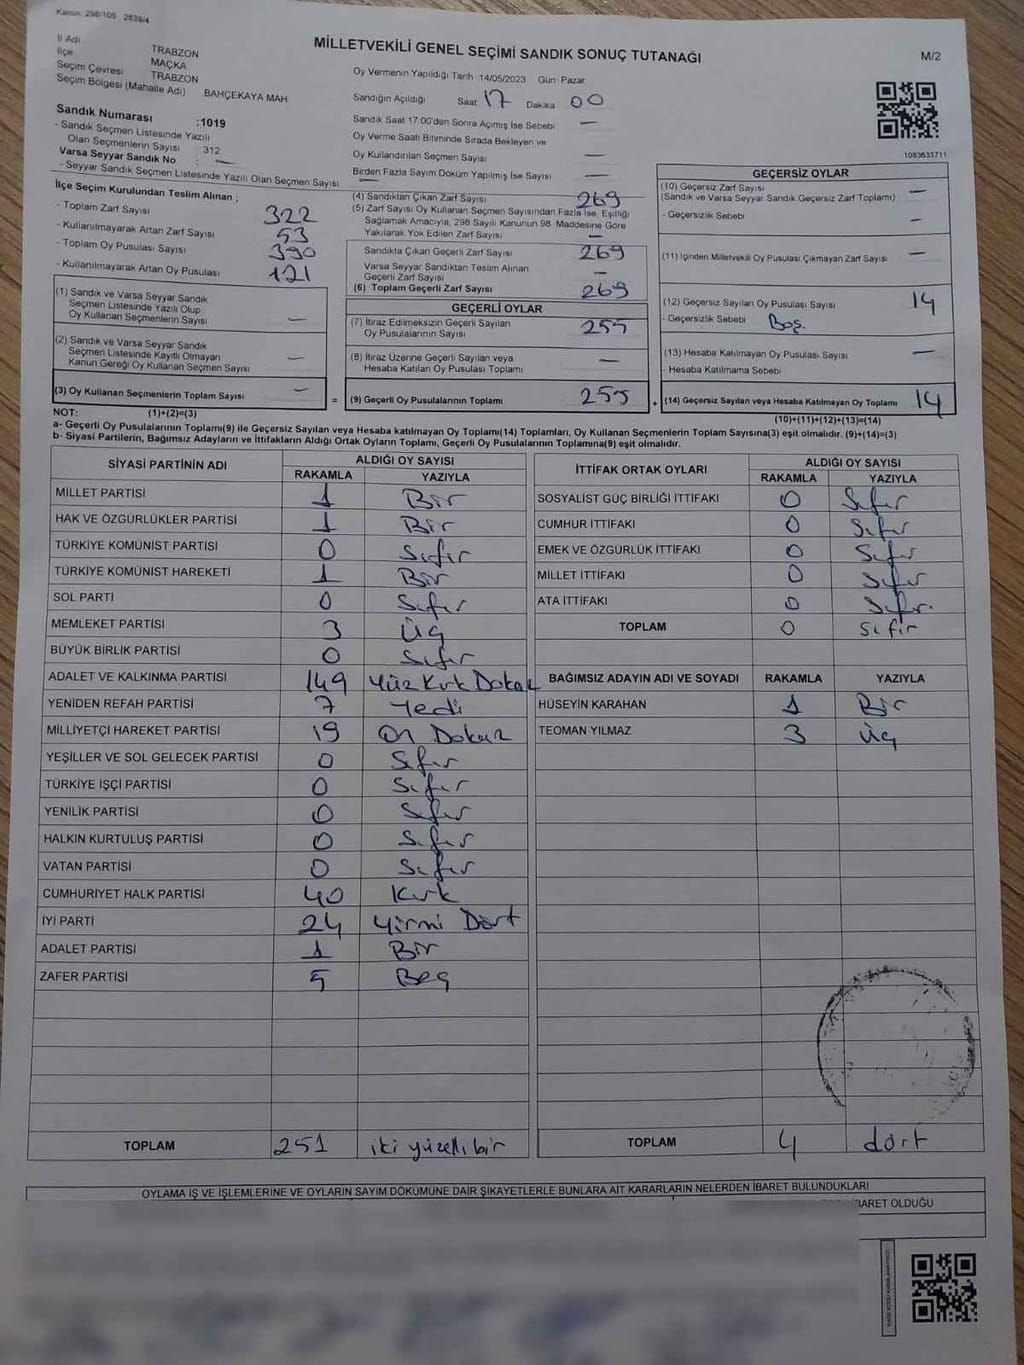 Kanun: 298/105 2839/4
MİLLETVEKİLİ GENEL SEÇİMİ SANDIK SONUÇ TUTANAĞI
M/2
İl Adı TRABZON
İlçe MAÇKA
Seçim Çevresi TRABZON
Seçim Bölgesi (Mahalle Adı) BAHÇEKAYA MAH
Sandık Numarası :1019
- Sandık Seçmen Listesinde Yazılı
Olan Seçmenlerin Sayısı 312
Varsa Seyyar Sandık No : —
- Seyyar Sandık Seçmen Listesinde Yazılı Olan Seçmen Sayısı —
Oy Vermenin Yapıldığı Tarih 14/05/2023 Gün Pazar
Sandığın Açıldığı Saat 17 Dakika 00
Sandık Saat 17:00'den Sonra Açımış İse Sebebi —
Oy Verme Saati Bitiminde Sırada Bekleyen ve
Oy Kullandırılan Seçmen Sayısı —
Birden Fazla Sayım Döküm Yapılmış İse Sayısı —
1083633711
İlçe Seçim Kurulundan Teslim Alınan ;
- Toplam Zarf Sayısı 322
- Kullanılmayarak Artan Zarf Sayısı 53
- Toplam Oy Pusulası Sayısı 390
- Kullanılmayarak Artan Oy Pusulası 121
(1) Sandık ve Varsa Seyyar Sandık
Seçmen Listesinde Yazılı Olup
Oy Kullanan Seçmenlerin Sayısı —
(2) Sandık ve Varsa Seyyar Sandık
Seçmen Listesinde Kayıtlı Olmayan
Kanun Gereği Oy Kullanan Seçmen Sayısı —
(3) Oy Kullanan Seçmenlerin Toplam Sayısı —
=
(4) Sandıktan Çıkan Zarf Sayısı 269
(5) Zarf Sayısı Oy Kullanan Seçmen Sayısından Fazla İse, Eşitliği
Sağlamak Amacıyla, 298 Sayılı Kanunun 98. Maddesine Göre
Yakılarak Yok Edilen Zarf Sayısı —
Sandıkta Çıkan Geçerli Zarf Sayısı 269
Varsa Seyyar Sandıktan Teslim Alınan
Geçerli Zarf Sayısı —
(6) Toplam Geçerli Zarf Sayısı 269
GEÇERLİ OYLAR
(7) İtiraz Edilmeksizin Geçerli Sayılan
Oy Pusulalarının Sayısı 255
(8) İtiraz Üzerine Geçerli Sayılan veya
Hesaba Katılan Oy Pusulası Toplamı —
(9) Geçerli Oy Pusulalarının Toplamı 255
GEÇERSİZ OYLAR
(10) Geçersiz Zarf Sayısı —
(Sandık ve Varsa Seyyar Sandık Geçersiz Zarf Toplamı)
- Geçersizlik Sebebi —
(11) İçinden Milletvekili Oy Pusulası Çıkmayan Zarf Sayısı —
(12) Geçersiz Sayılan Oy Pusulası Sayısı 14
- Geçersizlik Sebebi Boş.
(13) Hesaba Katılmayan Oy Pusulası Sayısı —
- Hesaba Katılmama Sebebi
(14) Geçersiz Sayılan veya Hesaba Katılmayan Oy Toplamı 14
NOT: (1)+(2)=(3) (10)+(11)+(12)+(13)=(14)
a- Geçerli Oy Pusulalarının Toplamı(9) ile Geçersiz Sayılan veya Hesaba katılmayan Oy Toplamı(14) Toplamları, Oy Kullanan Seçmenlerin Toplam Sayısına(3) eşit olmalıdır. (9)+(14)=(3)
b- Siyasi Partilerin, Bağımsız Adayların ve İttifakların Aldığı Ortak Oyların Toplamı, Geçerli Oy Pusulalarının Toplamına(9) eşit olmalıdır.
SİYASİ PARTİNİN ADI ALDIĞI OY SAYISI
RAKAMLA YAZIYLA
MİLLET PARTİSİ 1 Bir
HAK VE ÖZGÜRLÜKLER PARTİSİ 1 Bir
TÜRKİYE KOMÜNİST PARTİSİ 0 Sıfır
TÜRKİYE KOMÜNİST HAREKETİ 1 Bir
SOL PARTİ 0 Sıfır
MEMLEKET PARTİSİ 3 Üç
BÜYÜK BİRLİK PARTİSİ 0 Sıfır
ADALET VE KALKINMA PARTİSİ 149 Yüz Kırk Dokuz
YENİDEN REFAH PARTİSİ 7 Yedi
MİLLİYETÇİ HAREKET PARTİSİ 19 On Dokuz
YEŞİLLER VE SOL GELECEK PARTİSİ 0 Sıfır
TÜRKİYE İŞÇİ PARTİSİ 0 Sıfır
YENİLİK PARTİSİ 0 Sıfır
HALKIN KURTULUŞ PARTİSİ 0 Sıfır
VATAN PARTİSİ 0 Sıfır
CUMHURİYET HALK PARTİSİ 40 Kırk
İYİ PARTİ 24 Yirmi Dört
ADALET PARTİSİ 1 Bir
ZAFER PARTİSİ 5 Beş
TOPLAM 251 iki yüzelli bir
İTTİFAK ORTAK OYLARI ALDIĞI OY SAYISI
RAKAMLA YAZIYLA
SOSYALİST GÜÇ BİRLİĞİ İTTİFAKI 0 Sıfır
CUMHUR İTTİFAKI 0 Sıfır
EMEK VE ÖZGÜRLÜK İTTİFAKI 0 Sıfır
MİLLET İTTİFAKI 0 Sıfır
ATA İTTİFAKI 0 Sıfır.
TOPLAM 0 Sıfır
BAĞIMSIZ ADAYIN ADI VE SOYADI RAKAMLA YAZIYLA
HÜSEYİN KARAHAN 1 Bir
TEOMAN YILMAZ 3 Üç
TOPLAM 4 dört
OYLAMA İŞ VE İŞLEMLERİNE VE OYLARIN SAYIM DÖKÜMÜNE DAİR ŞİKAYETLERLE BUNLARA AİT KARARLARIN NELERDEN İBARET BULUNDUKLARI
İBARET OLDUĞU